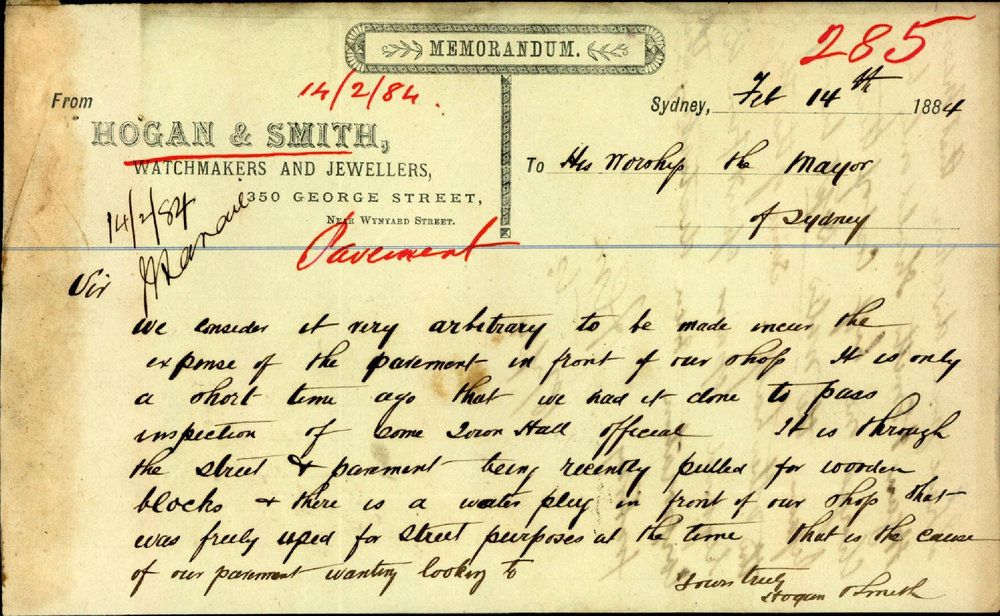 285
MEMORANDUM.
14/2/84.
From
Sydney, Feb 14th 1884
HOGAN & SMITH,
WATCHMAKERS AND JEWELLERS,
350 GEORGE STREET,
NEAR WYNYARD STREET.
To His Worship the Mayor
of Sydney
14/2/84
Pavement
Sir
We consider it very arbitrary to be made incur the
expense of the pavement in front of our shop It is only
a short time ago that we had it done to pass
inspection of some Town Hall official It is through
the street & pavement being recently pulled for wooden
blocks & there is a water plug in front of our shop that
was freely used for street purposes at the time that is the cause
of our pavement wanting looking to
Yours truly
Hogan & Smith